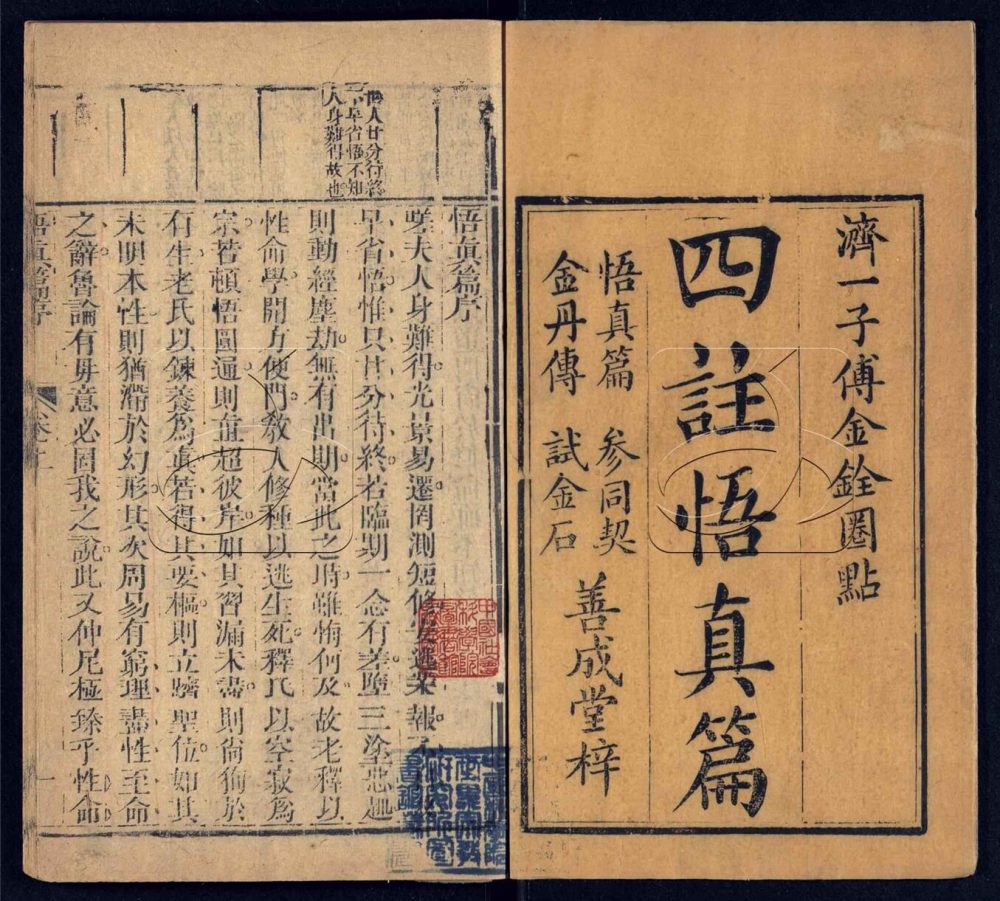 濟一子傅金銓圈點
四註悟真篇
悟真篇 参同契
金丹傳 試金石
善成堂梓
人甘分待終
不早省悟不知
人身難得故也
悟真篇序
嗟夫人身難得光景易遷罔測短修安逃業報不
早省悟惟只甘分待終若臨期一念有差墮三塗惡趣
則動經塵劫無有出期當此之時雖悔何及故老釋以
性命學開方便門教人修種以逃生死釋氏以空寂為
宗若頓悟圓通則直超彼岸如其習漏未盡則尚徇於
有生老氏以鍊養為真若得其要樞則立躋聖位如其
未明本性則猶滯於幻形其次周易有窮理盡性至命
之辭魯論有毋意必固我之說此又仲尼極臻乎性命
悟真篇 序 卷上 一
中國社會
科學院
圖書館